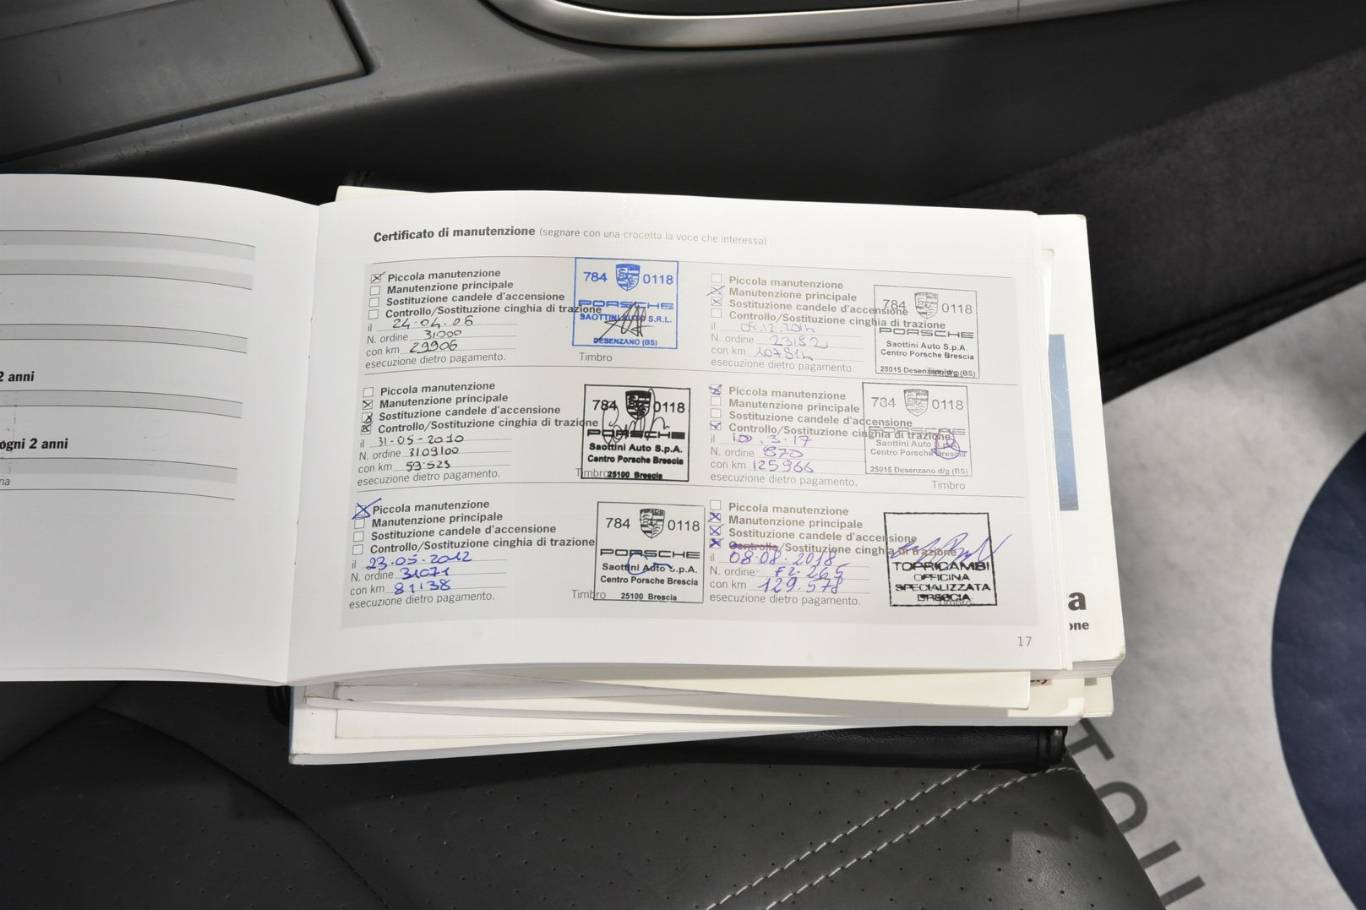 2 anni
ogni 2 anni
na
Certificato di manutenzione (segnare con una crocetta la voce che interessa)
Piccola manutenzione
Manutenzione principale
Sostituzione candele d'accensione
Controllo/Sostituzione cinghia di trazione
il 24.04.06
N. ordine 31000
con km 29906
esecuzione dietro pagamento.
784 0118
PORSCHE
SAOTTINI AUTO S.R.L.
DESENZANO (BS)
Timbro
Piccola manutenzione
Manutenzione principale
Sostituzione candele d'accensione
Controllo/Sostituzione cinghia di trazione
il 31-05-2010
N. ordine 3109100
con km 59.523
esecuzione dietro pagamento.
784 0118
PORSCHE
Saottini Auto S.p.A.
Centro Porsche Brescia
25100 Brescia
Timbro
Piccola manutenzione
Manutenzione principale
Sostituzione candele d'accensione
Controllo/Sostituzione cinghia di trazione
il 23.05.2012
N. ordine 31071
con km 81138
esecuzione dietro pagamento.
784 0118
PORSCHE
Saottini Auto S.p.A.
Centro Porsche Brescia
25100 Brescia
Timbro
Piccola manutenzione
Manutenzione principale
Sostituzione candele d'accensione
Controllo/Sostituzione cinghia di trazione
il
N. ordine 23182
con km
esecuzione dietro pagamento.
784 0118
PORSCHE
Saottini Auto S.p.A.
Centro Porsche Brescia
25015 Desenzano d/g (BS)
Piccola manutenzione
Manutenzione principale
Sostituzione candele d'accensione
Controllo/Sostituzione cinghia di trazione
il
N. ordine 870
con km 125966
esecuzione dietro pagamento.
784 0118
PORSCHE
Saottini Auto
Centro Porsche Brescia
25015 Desenzano d/g (BS)
Timbro
Piccola manutenzione
Manutenzione principale
Sostituzione candele d'accensione
Controllo/Sostituzione cinghia di trazione
il 08.08.2018
N. ordine F2.265
con km 129.578
esecuzione dietro pagamento.
TOPRICAMBI
OFFICINA
SPECIALIZZATA
BRESCIA
Timbro
17
a
one
TOU